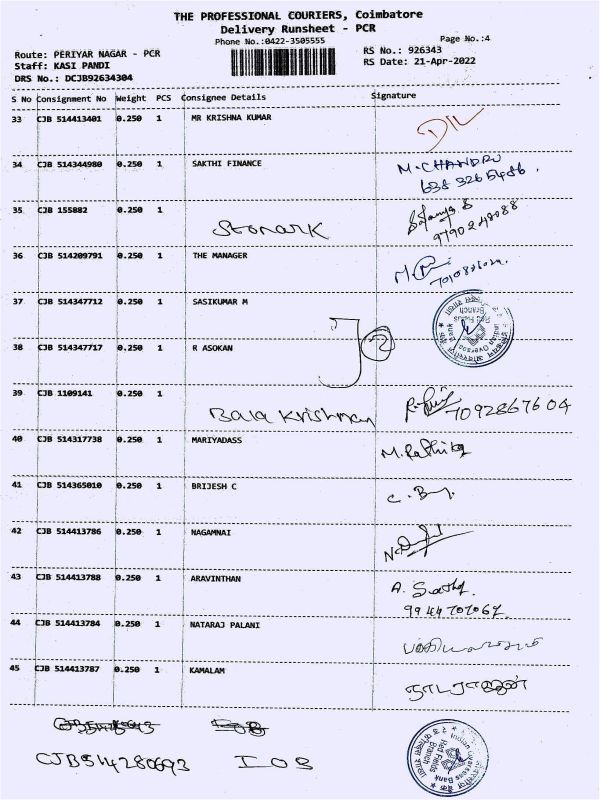 THE PROFESSIONAL COURIERS, Coimbatore
Delivery Runsheet - PCR
Phone No.:0422-3505555
Page No.:4
Route: PERIYAR NAGAR - PCR
RS No.: 926343
Staff: KASI PANDI
RS Date: 21-Apr-2022
DRS No.: DCJB92634304
S No Consignment No Weight PCS Consignee Details Signature
33 CJB 514413401 0.250 1 MR KRISHNA KUMAR
34 CJB 514344980 0.250 1 SAKTHI FINANCE M.CHANDRU
35 CJB 155882 0.250 1
Stonark 9790248088
36 CJB 514209791 0.250 1 THE MANAGER
37 CJB 514347712 0.250 1 SASIKUMAR M
38 CJB 514347717 0.250 1 R ASOKAN 2
39 CJB 1109141 0.250 1
Bala Krishnan 7092867604
40 CJB 514317738 0.250 1 MARIYADASS
41 CJB 514365010 0.250 1 BRIJESH C
42 CJB 514413786 0.250 1 NAGAMNAI
43 CJB 514413788 0.250 1 ARAVINTHAN
44 CJB 514413784 0.250 1 NATARAJ PALANI
45 CJB 514413787 0.250 1 KAMALAM
CJB514280693 IOB